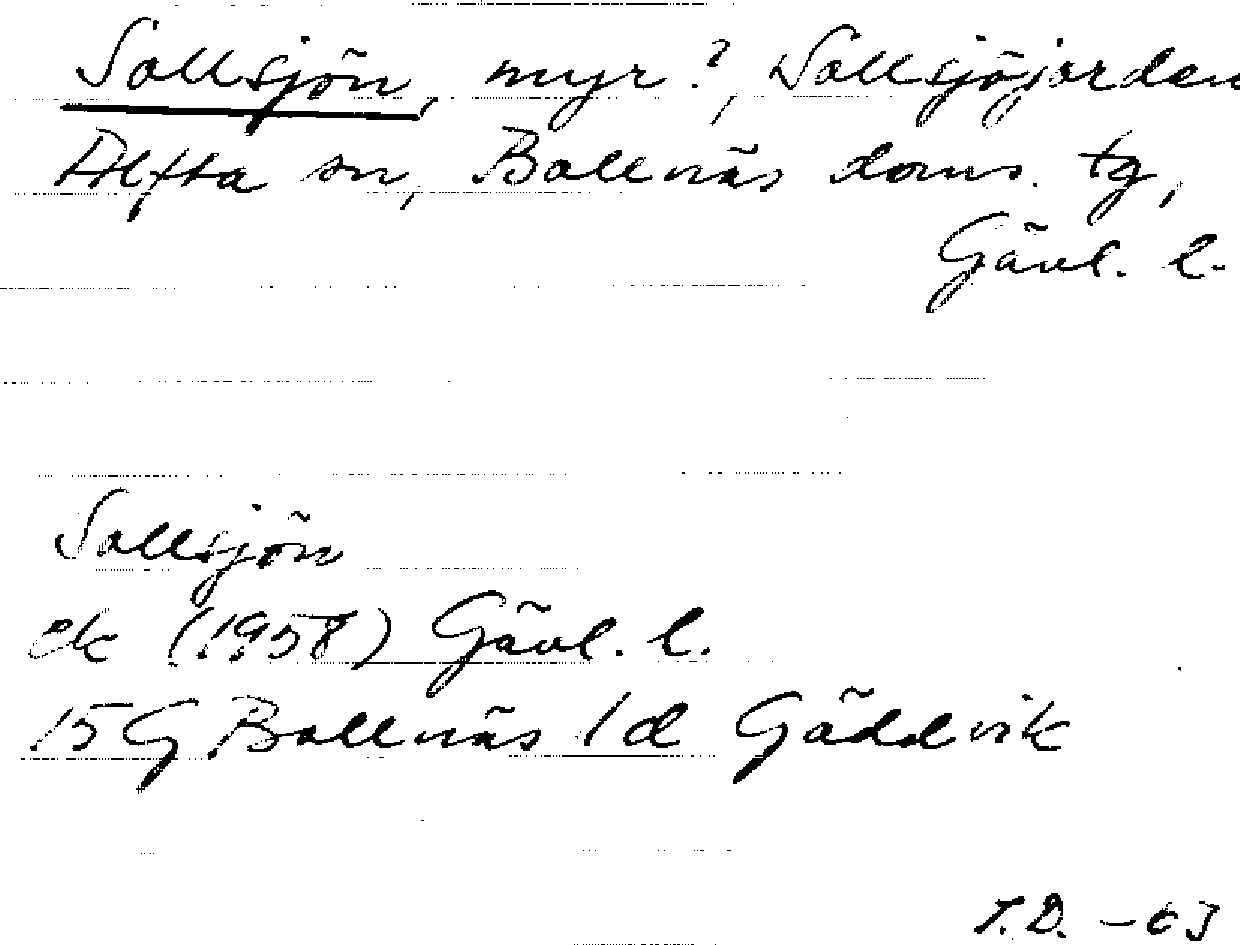 Sollsjön, myr?, Sollsjöjorden
Alfta sn, Bollnäs doms. tg,
Gävl. l.
Sollsjön
ek (1958) Gävl. l.
15G Bollnäs 1d Gäddvik
T.D. -63